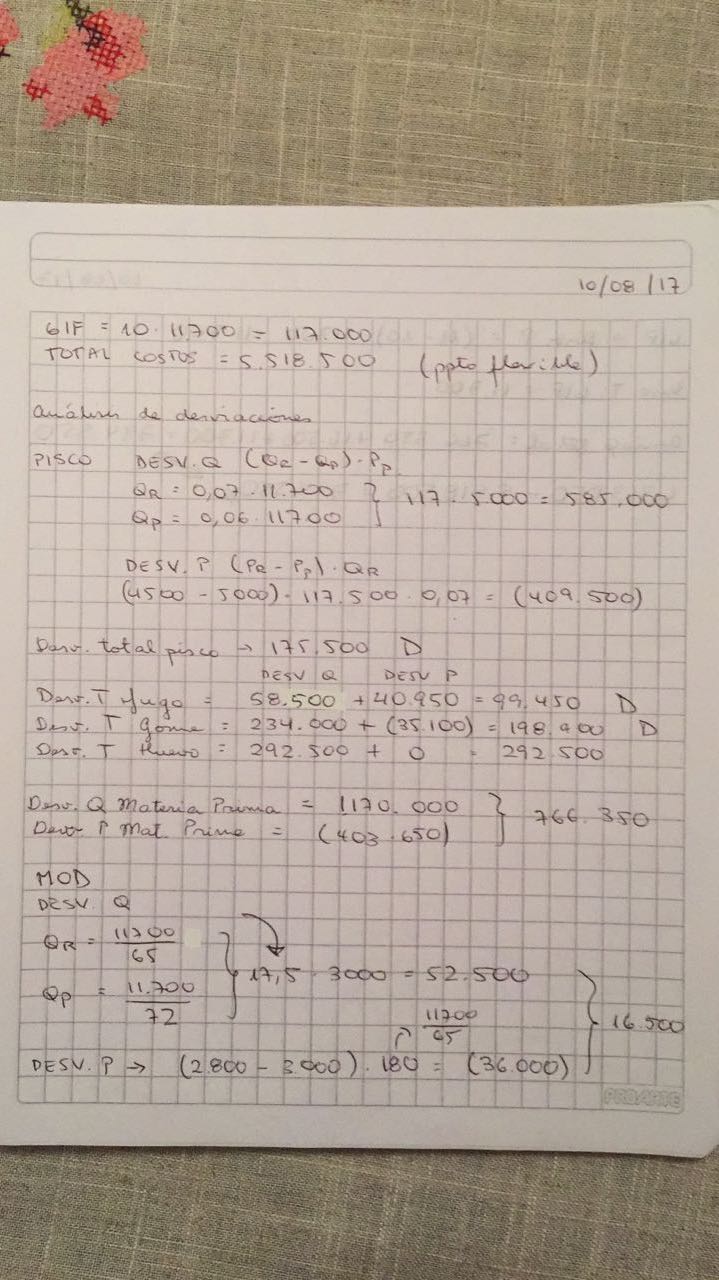 10/08/17
GIF = 10 · 11700 = 117.000
TOTAL COSTOS = 5.518.500 (ppto flexible)
Análisis de desviaciones
PISCO DESV. Q (QR - QP) · PP
QR = 0,07 · 11.700
QP = 0,06 · 11700
} 117 · 5.000 = 585.000
DESV. P (PR - PP) · QR
(4500 - 5000) · 117.500 · 0,07 = (409.500)
Desv. total pisco → 175.500 D
DESV Q DESV P
Desv. T Jugo = 58.500 + 40.950 = 99.450 D
Desv. T Goma = 234.000 + (35.100) = 198.900 D
Desv. T Huevo = 292.500 + 0 = 292.500
Desv. Q Materia Prima = 1170.000
Desv P Mat. Prima = (403.650)
} 766.350
MOD
DESV. Q
QR = 11700/65
QP = 11.700/72
} 17,5 · 3000 = 52.500
11700/65
DESV. P → (2.800 - 3.000) · 180 = (36.000)
} 16.500
PROARTE